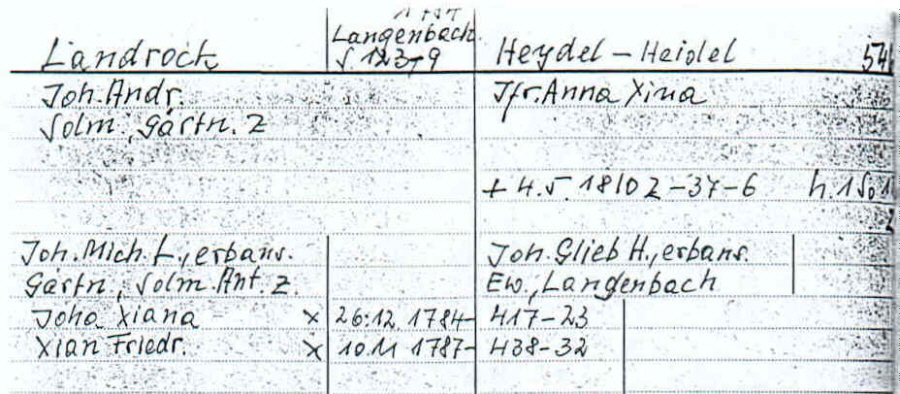 Langenbach
Landrock S. 123-9 Heydel - Heidel
Joh. Andr. Jfr. Anna Xina
Solm., Gärtn. Z
+ 4.5. 1810 Z-37-6
Joh. Mich. L., erbans. Joh. Glieb H., erbans.
Gärtn., Solm. Ant. Z. Ew., Langenbach
Joha Xiana x 26.12 1784- 417-23
Xian Friedr. x 10.11 1787- 438-32